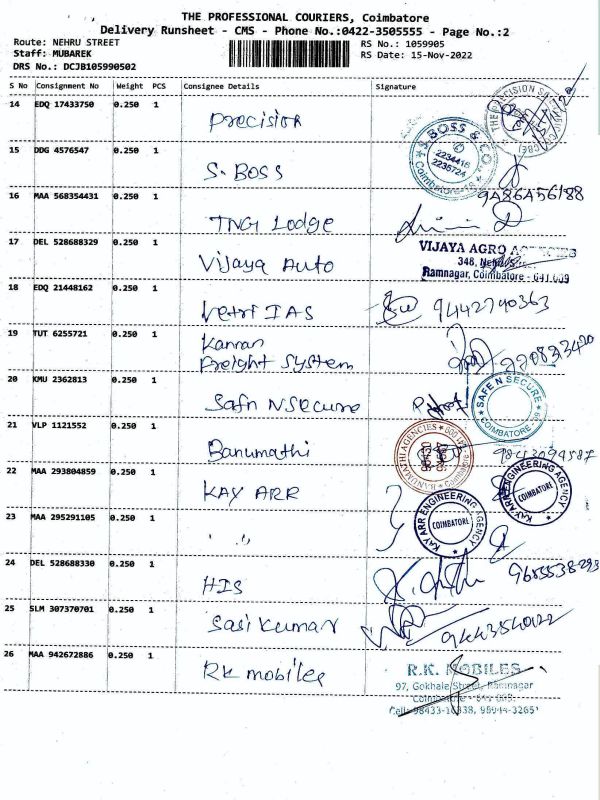 THE PROFESSIONAL COURIERS, Coimbatore
Delivery Runsheet - CMS - Phone No.:0422-3505555 - Page No.:2
Route: NEHRU STREET
RS No.: 1059905
Staff: MUBAREK
RS Date: 15-Nov-2022
DRS No.: DCJB105990502
S No Consignment No Weight PCS Consignee Details Signature
14 EDQ 17433750 0.250 1
Precision
15 DDG 4576547 0.250 1
S. BOSS & CO.
2234416
2235724
Coimbatore-18
S. BOSS
16 MAA 568354431 0.250 1
TNGI Lodge
17 DEL 528688329 0.250 1
VIJAYA AGRO AGENCIES
348,
Ramnagar, Coimbatore - 641 009
Vijaya Auto
18 EDQ 21448162 0.250 1
Vetri IAS 9442740363
19 TUT 6255721 0.250 1
Kannan
Freight System
20 KMU 2362813 0.250 1
SAFE N SECURE
COIMBATORE
Safn NSecure
21 VLP 1121552 0.250 1
BANUMATHI AGENCIES
Banumathi
22 MAA 293804859 0.250 1
KAY ARR
KAY ARR ENGINEERING AGENCY
COIMBATORE
23 MAA 295291105 0.250 1
" "
KAY ARR ENGINEERING AGENCY
COIMBATORE
24 DEL 528688330 0.250 1
HIS
25 SLM 307370701 0.250 1
Sasi Kumar
26 MAA 942672886 0.250 1
RK mobiles
R.K. MOBILES
97, Gokhale Street, Ramnagar